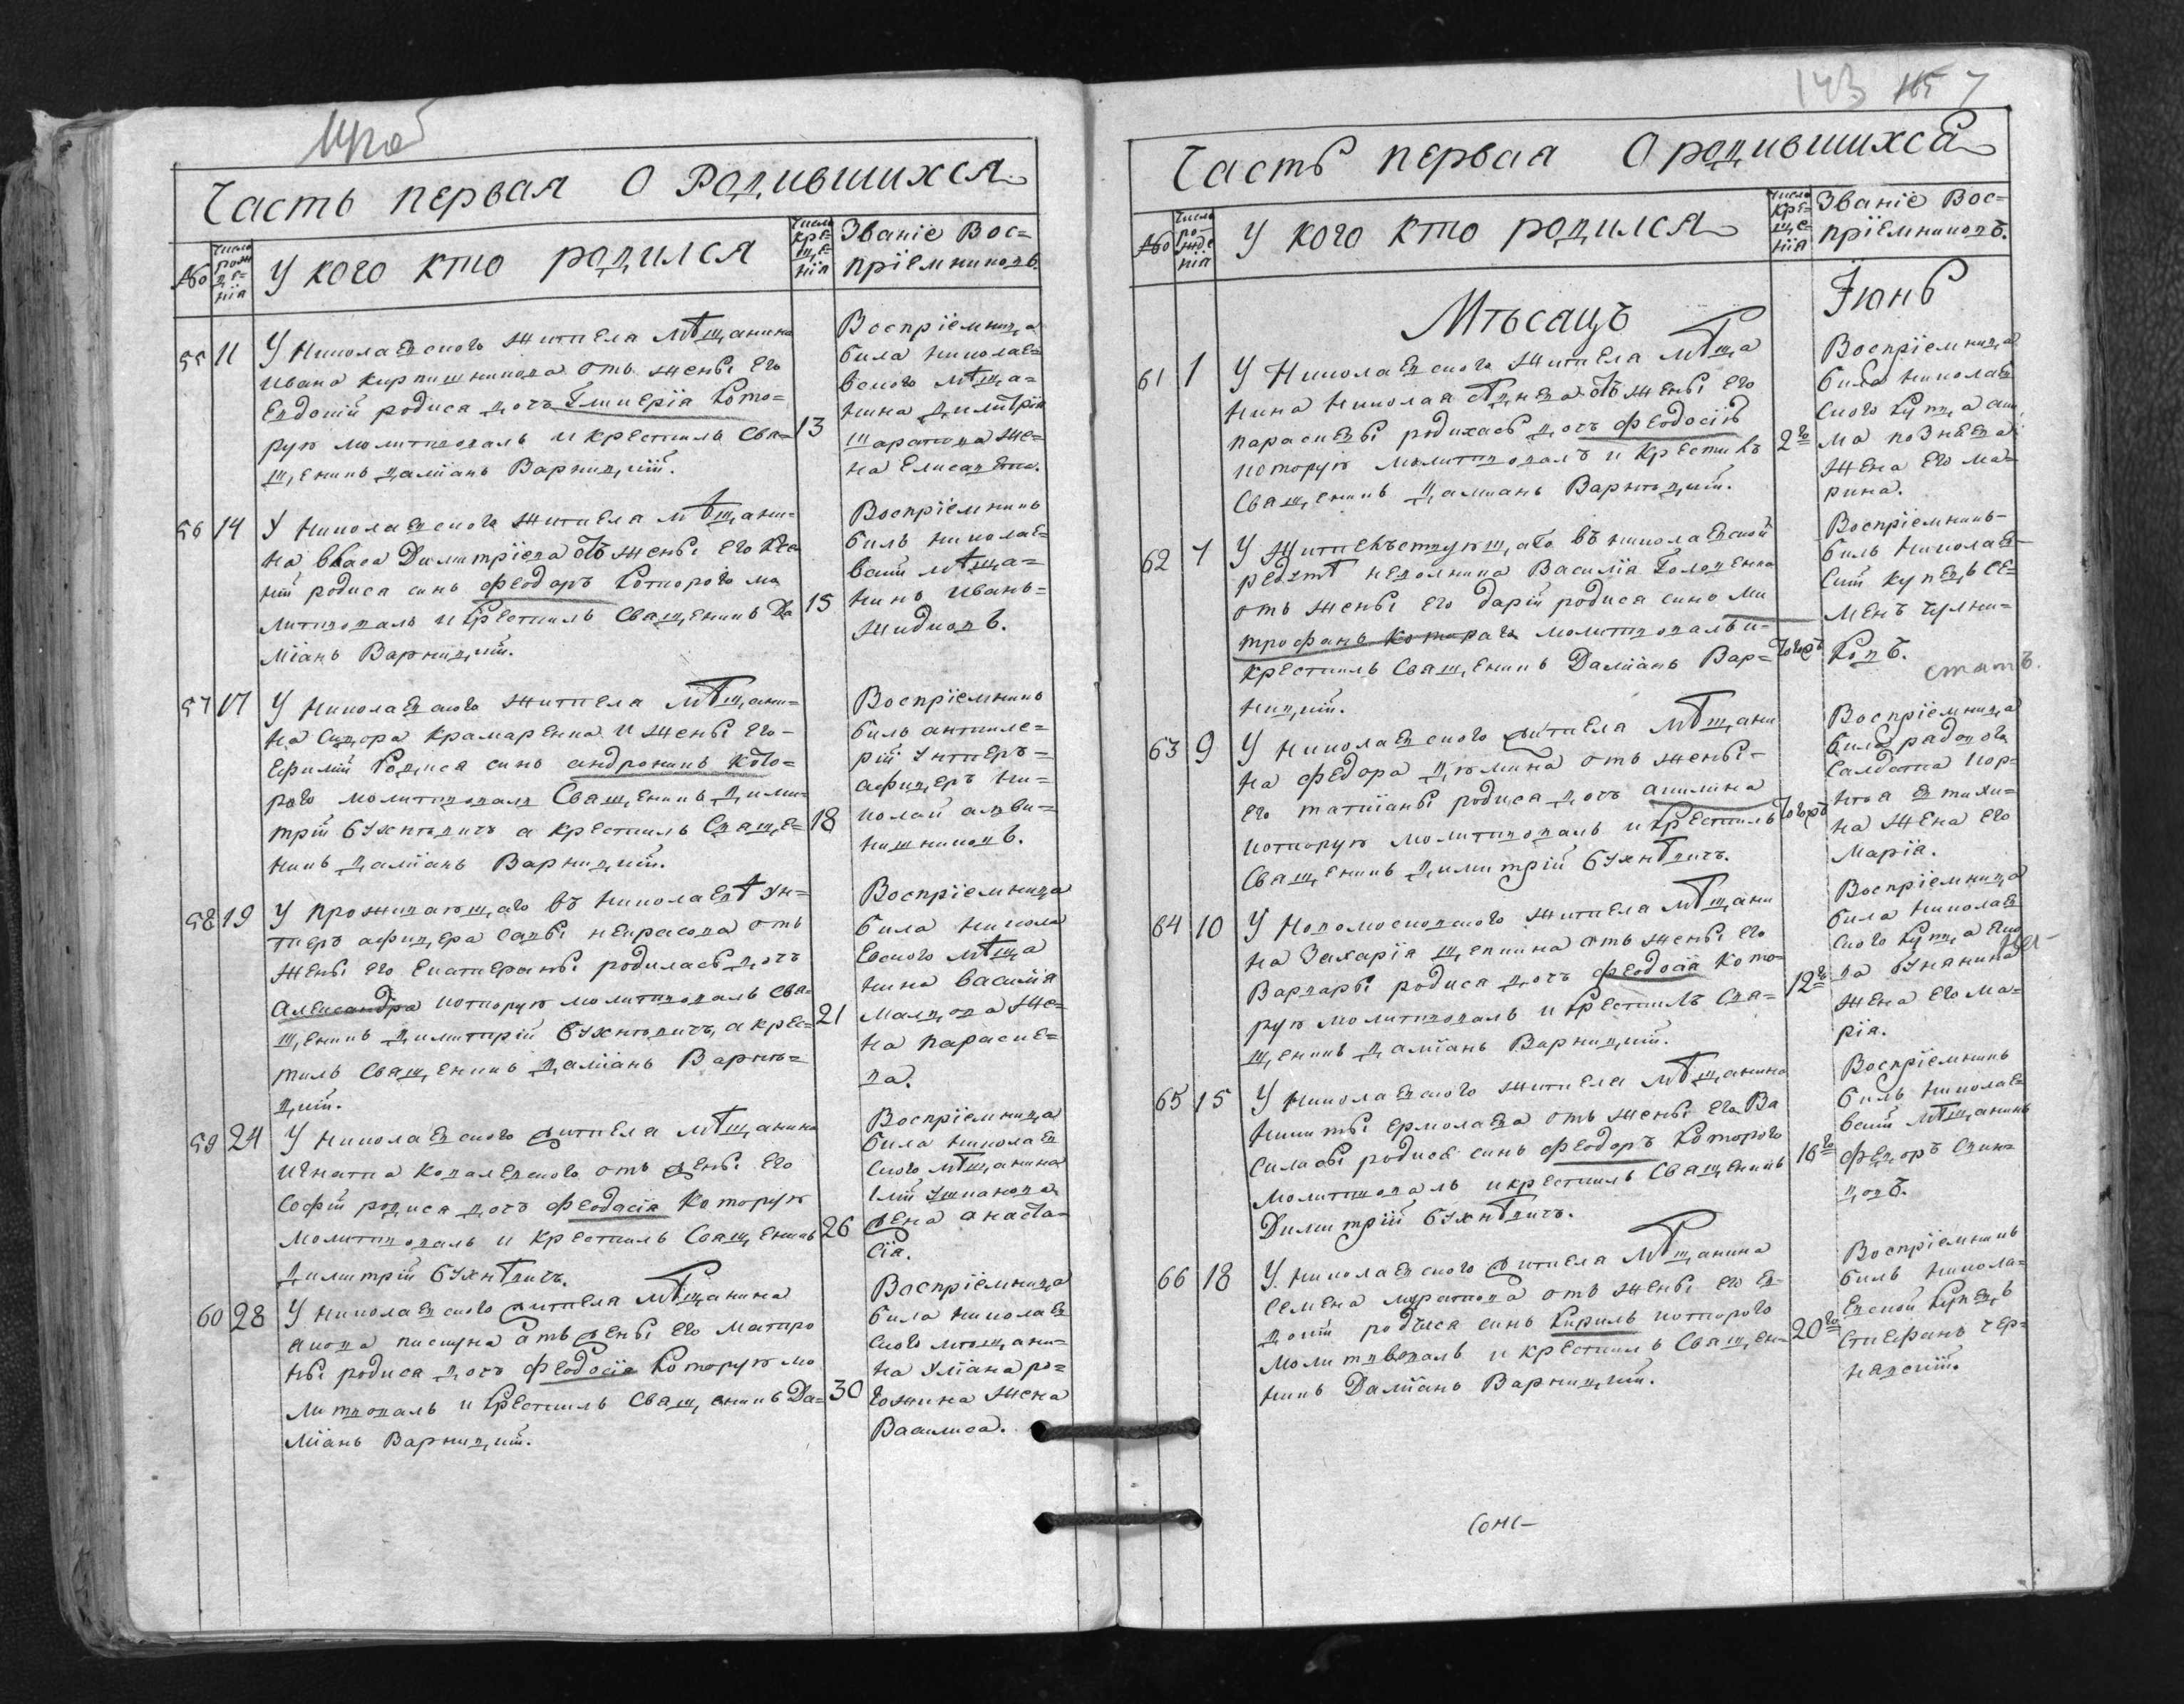 143 7
Часть первая О Родившихся
№
Число рож де= нія
У кого кто родился
Число кре= ще= нія
Званіе Вос= пріемниковъ
55 11
У Николаевского жителя мѣщанина
Ивана Кирпишникова отъ жены его
Евдокіи родися дочъ Гликерія кото=
рую молитвовалъ и крестилъ Свя= 13
щенникъ Даміанъ Варницкій.
Воспріемница
была Николае=
вского мѣща=
нина Димитрія
жена
на Елисавета.
56 14
У Николаевского жителя мѣщани=
на Власа Димитріева отъ жены его
родися синъ Феодоръ которого мо
литвовалъ и крестилъ Священникъ Да 15
міанъ Варницкій.
Воспріемникъ
билъ Николае=
вскій мѣща=
нинъ Иванъ=
Жидковъ.
57 17
У Николаевского жителя мѣщани=
на Сидора Крамаренка и жены его=
Ефиміи родися синъ Андроникъ кото=
рого молитвовалъ Священникъ Дими=
трій Бухнѣвичъ а крестилъ Священ= 18
никъ Даміанъ Варницкій.
Воспріемникъ
билъ антиле=
рій унтеръ=
афицеръ Ни=
колай
58 19
У проживающаго въ Николаевѣ ун=
теръ афицера Савы Некрасова отъ
жены его Екатерины родилась дочъ
Александра которую молитвовалъ Свя=
щенникъ Димитрій Бухнѣвичъ, а крес= 21
тилъ Священникъ Даміанъ Варни=
цкій.
Воспріемница
била Никола
евского мѣща
нина Василія
Малцова же=
на Параске=
ва.
59 24
У Николаевского жителя мѣщанина
Игната Ковалевского отъ жены его
Софіи родися дочъ Феодосія которую
молитвовалъ и крестилъ Священникъ 26
Димитрій Бухнѣвичъ.
Воспріемница
била Николаев
ского мѣщанина
жена Анаста=
сія.
60 28
У Николаевского жителя мѣщанина
Якова Пискуна отъ жены его Матро
ны родися дочъ Феодосія которую мо
литвовалъ и крестилъ Священникъ Да= 30
міанъ Варницкій.
Воспріемница
била Николаев
ского мѣщани=
на Уліана Ро=
гожина жена
Василиса.
Часть первая О родившихся
№
Число ро= жде нія
У кого кто родился
Число кре= ще= нія
Званіе Вос= пріемниковъ.
Мѣсацъ Іюнь
61 1
У Николаевского жителя мѣща
нина Николая отъ жены его
Параскевы родилась дочъ Феодосія
которую молитвовалъ и крестилъ 2го
Священникъ Даміанъ Варницкій.
Воспріемница
била Николаев
ского купца
жена его Ма=
рина.
62 7
У жителствующаго въ Николаевской
Василія Голо
отъ жены его Даріи родися синъ Ми
трофанъ которого молитвовалъ и=
крестилъ Священникъ Даміанъ Вар=
ницкій.
Воспріемникъ=
билъ Николаев=
скій купецъ Се=
менъ
ковъ.
63 9
У Николаевского жителя мѣщани
на Федора отъ жены=
его Татіаны родися дочъ Акилина
которую молитвовалъ и крестилъ
Священникъ Димитрій Бухнѣвичъ.
Воспріемница
била
Салдата
на жена его
Марія.
64 10
У Новомосковского жителя мѣщани
на Захарія Щепкина отъ жены его
Варвары родися дочъ Феодосія кото=
рую молитвовалъ и крестилъ Свя= 12го
щенникъ Даміанъ Варницкій.
Воспріемница
била Николаев
ского купца
жена его Ма=
рія.
65 15
У Николаевского жителя мѣщанина
Никиты Ермолаева отъ жены его Ва
силисы родися синъ Феодоръ которого
молитвовалъ и крестилъ Священникъ 16го
Димитрій Бухнѣвичъ.
Воспріемникъ
билъ Николае=
вскій мѣщанинъ
Федоръ
66 18
У Николаевского жителя мѣщанина
Семена Муратова отъ жены его Ев=
докіи родися синъ Кирилъ которого
молитвовалъ и крестилъ Священ= 20го
никъ Даміанъ Варницкій.
Воспріемникъ
билъ Никола=
евской купецъ
Стефанъ Чер=
навскій.